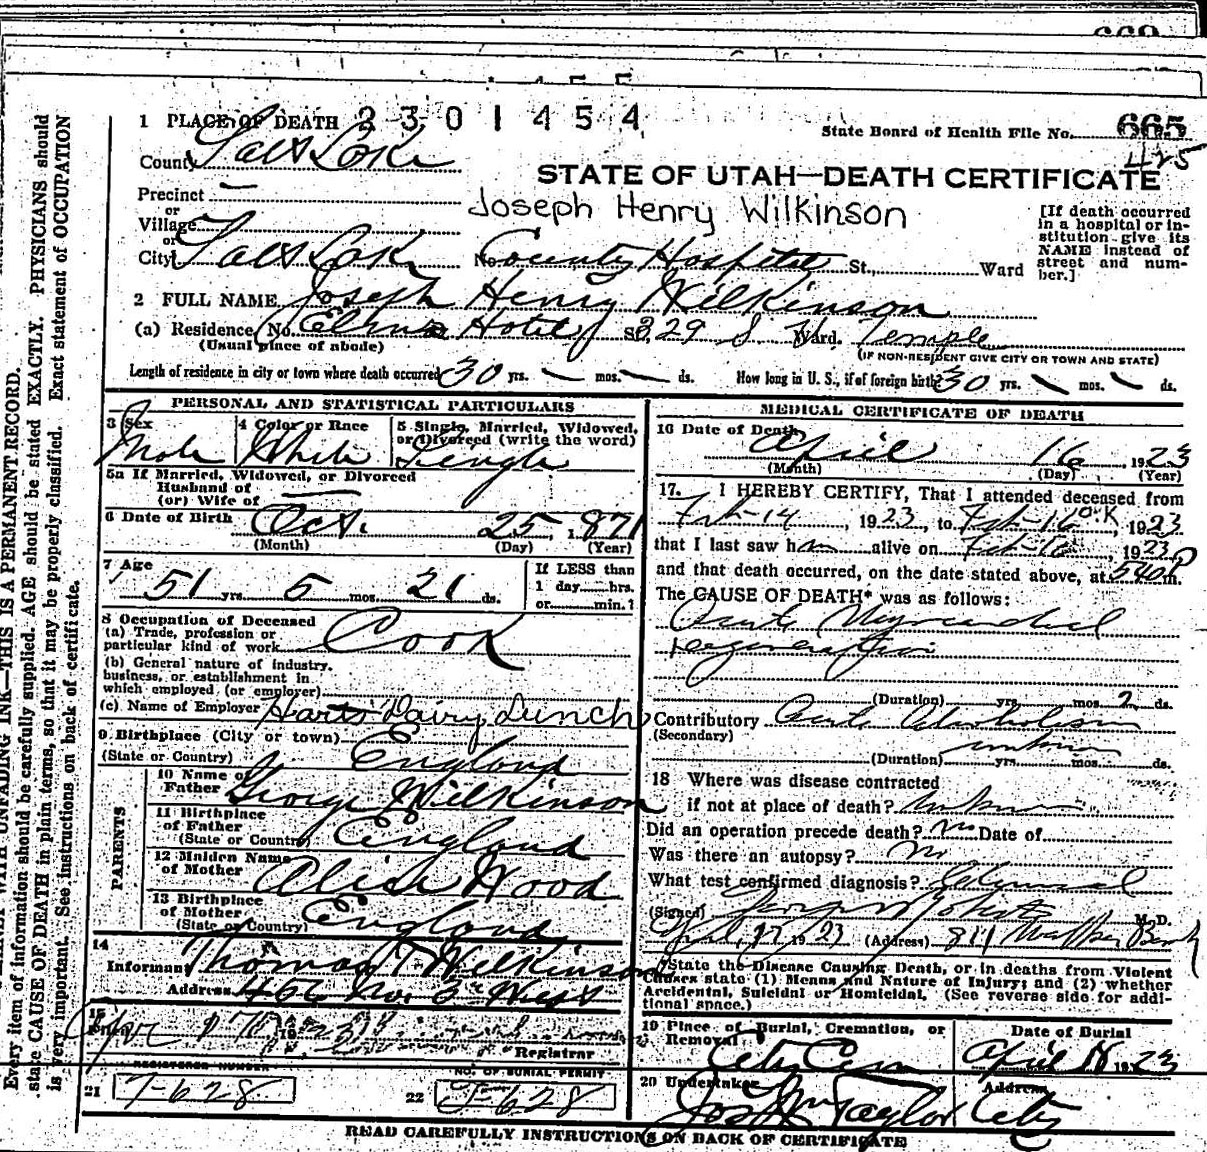 669
1 PLACE OF DEATH 2 3 0 1 4 5 4
State Board of Health File No. 665
425
County Salt Lake
STATE OF UTAH—DEATH CERTIFICATE
Precinct —
or
Joseph Henry Wilkinson
Village
or
City Salt Lake No. County Hospital St., Ward
[If death occurred in a hospital or institution give its NAME instead of street and number.]
2 FULL NAME Joseph Henry Wilkinson
(a) Residence, No. Hotel St. 329 S W Ward. Temple
(Usual place of abode) (IF NON-RESIDENT GIVE CITY OR TOWN AND STATE)
Length of residence in city or town where death occurred 30 yrs. — mos. — ds. How long in U. S., if of foreign birth? 30 yrs. — mos. — ds.
PERSONAL AND STATISTICAL PARTICULARS
3 Sex Male
4 Color or Race White
5 Single, Married, Widowed, or Divorced (write the word) Single
5a If Married, Widowed, or Divorced
Husband of
(or) Wife of —
6 Date of Birth Oct. 25, 1871
(Month) (Day) (Year)
7 Age 51 yrs. 5 mos. 21 ds.
If LESS than
1 day hrs.
or min.?
8 Occupation of Deceased
(a) Trade, profession or
particular kind of work Cook
(b) General nature of industry,
business, or establishment in
which employed (or employer)
(c) Name of Employer Harts Dairy Lunch
9 Birthplace (City or town)
(State or Country) England
PARENTS
10 Name of
Father George Wilkinson
11 Birthplace
of Father
(State or Country) England
12 Maiden Name
of Mother Alice Wood
13 Birthplace
of Mother
(State or Country) England
14
Informant Thomas T Wilkinson
Address 466 No. 3rd West
15
Filed
Registrar
REGISTERED NUMBER
21 T-628
NO. OF BURIAL PERMIT
22 T-628
MEDICAL CERTIFICATE OF DEATH
16 Date of Death April 16, 1923
(Month) (Day) (Year)
17. I HEREBY CERTIFY, That I attended deceased from
Feb-14, 1923, to Feb-16 O.K, 1923
that I last saw him alive on Feb-16, 1923,
and that death occurred, on the date stated above, at 540P m.
The CAUSE OF DEATH* was as follows:
Acute Myocardial
Degeneration
(Duration) yrs. mos. 2 ds.
Contributory Acute Alcoholism
(Secondary) unknown
(Duration) yrs. mos. ds.
18 Where was disease contracted
if not at place of death? Unknown
Did an operation precede death? No Date of
Was there an autopsy? No
What test confirmed diagnosis?
(Signed) M. D.
April, 17, 1923 (Address) 811 Walker Bank
*State the Disease Causing Death, or in deaths from Violent
Causes state (1) Means and Nature of Injury; and (2) whether
Accidental, Suicidal or Homicidal. (See reverse side for additional space.)
19 Place of Burial, Cremation, or
Removal City Cem
Date of Burial
April 18 1923
20 Undertaker Jos Wm Taylor
Address City
READ CAREFULLY INSTRUCTIONS ON BACK OF CERTIFICATE
UNFADING INK—THIS IS A PERMANENT RECORD.
Every item of information should be carefully supplied. AGE should be stated EXACTLY. PHYSICIANS should
state CAUSE OF DEATH in plain terms, so that it may be properly classified. Exact statement of OCCUPATION
is very important. See instructions on back of certificate.